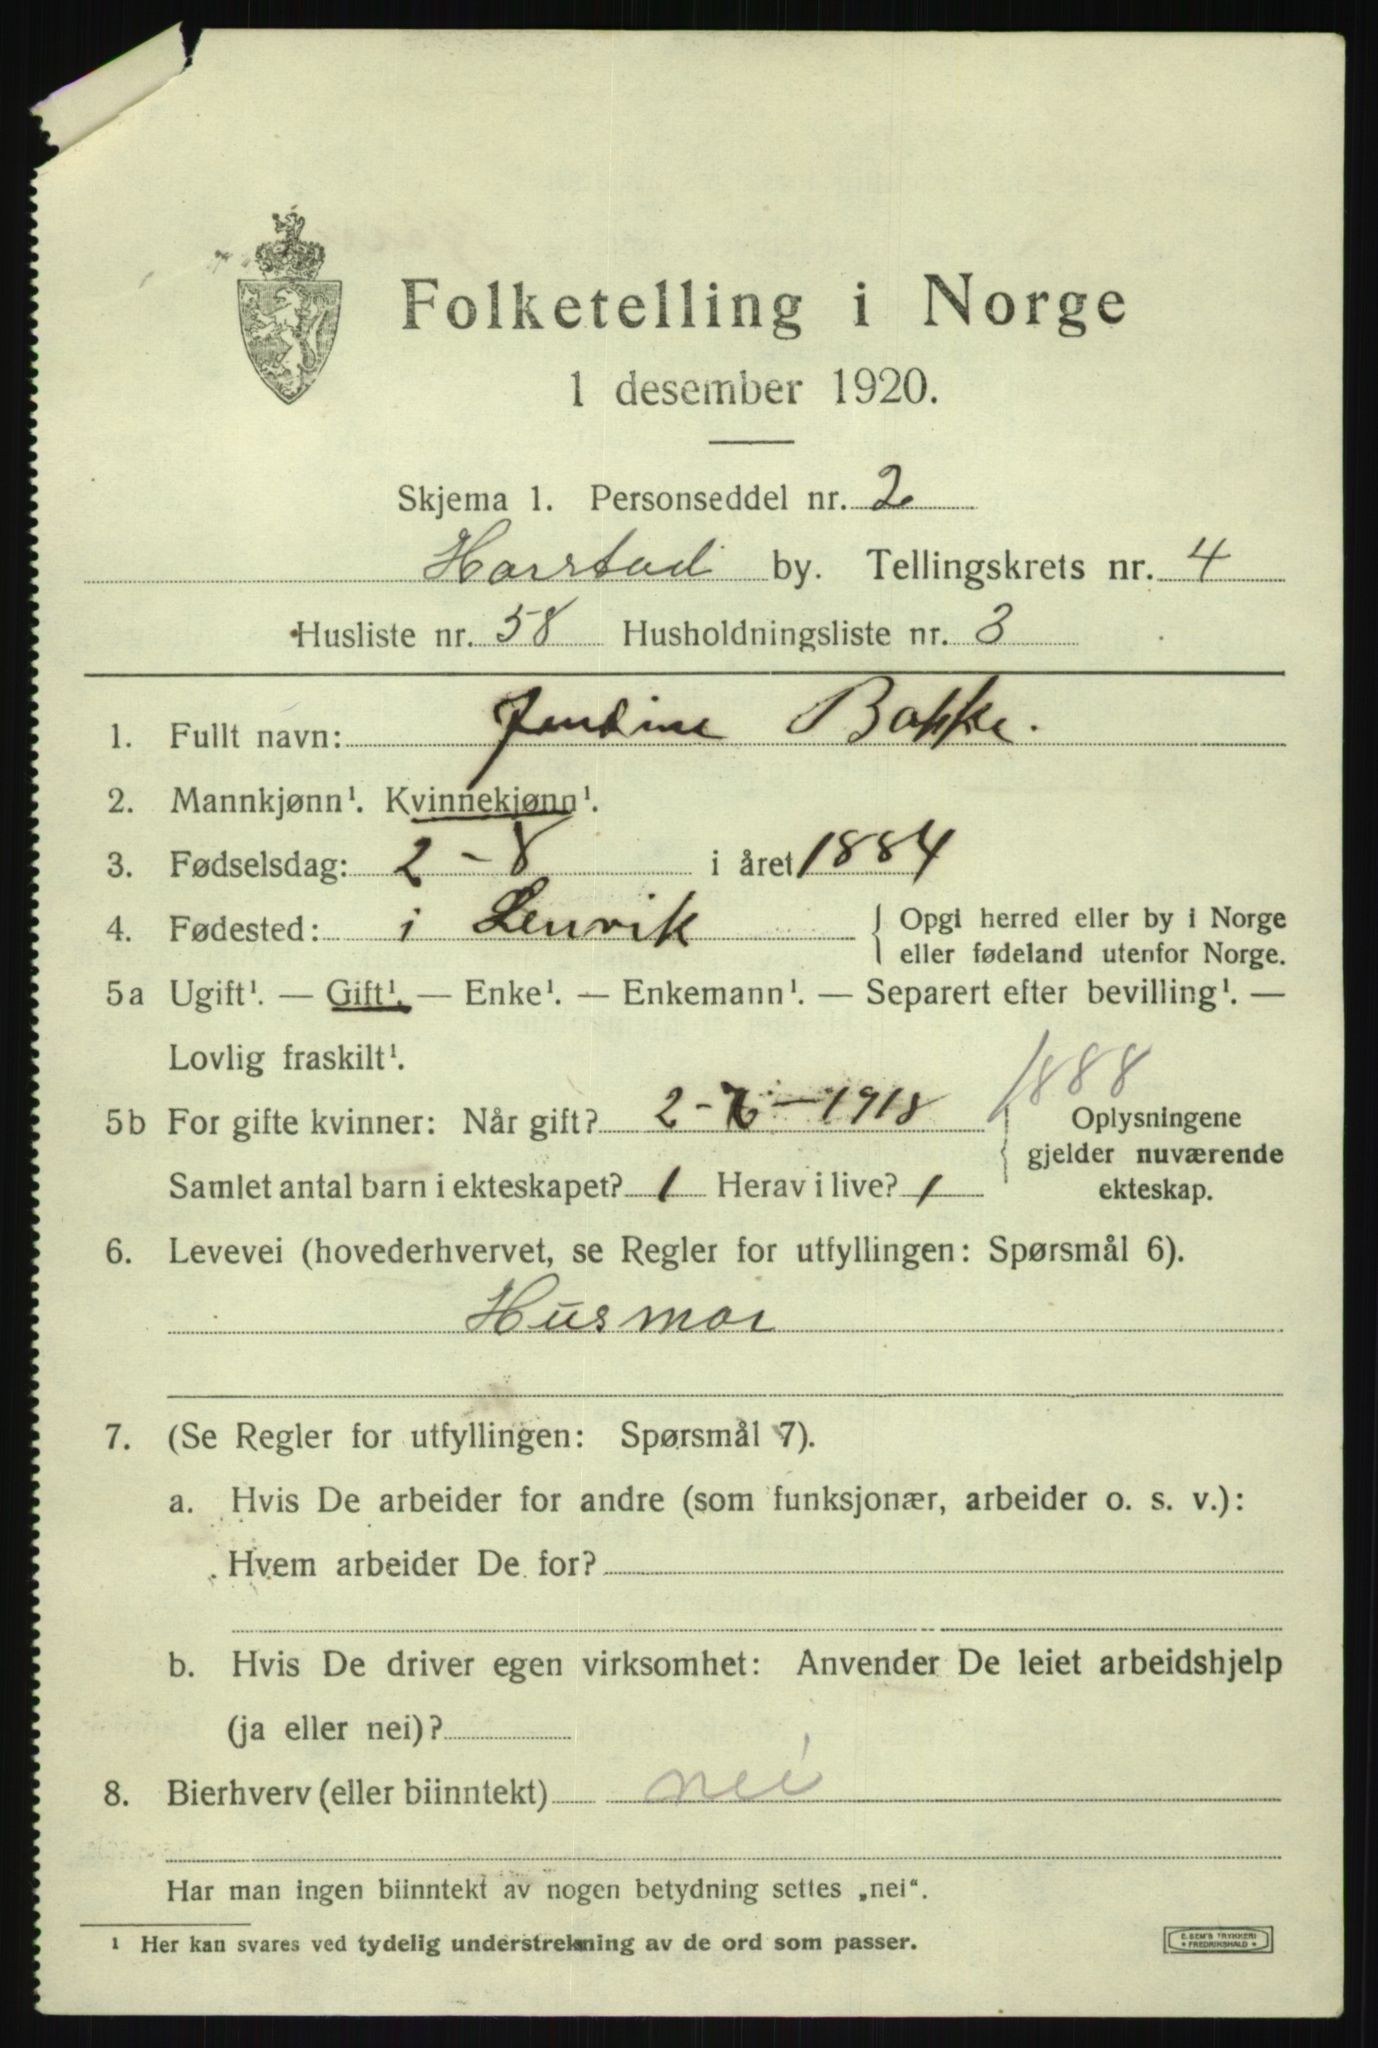 Folketelling i Norge
1 desember 1920.
Skjema 1. Personseddel nr. 2
Harstad by. Tellingskrets nr. 4
Husliste nr. 58 Husholdningsliste nr. 3
1. Fullt navn: Jentine Bakke.
2. Mannkjønn¹. Kvinnekjønn¹.
3. Fødselsdag: 2-8 i året 1884
4. Fødested: i Lenvik { Opgi herred eller by i Norge
eller fødeland utenfor Norge.
5a Ugift¹. — Gift¹. — Enke¹. — Enkemann¹. — Separert efter bevilling¹. —
Lovlig fraskilt¹.
1888
5b For gifte kvinner: Når gift? 2- -1918 Oplysningene
gjelder nuværende
Samlet antal barn i ekteskapet? 1 Herav i live? 1 ekteskap.
6. Levevei (hovederhvervet, se Regler for utfyllingen: Spørsmål 6).
Husmor
7. (Se Regler for utfyllingen: Spørsmål 7).
a. Hvis De arbeider for andre (som funksjonær, arbeider o. s. v.):
Hvem arbeider De for?
b. Hvis De driver egen virksomhet: Anvender De leiet arbeidshjelp
(ja eller nei)?
8. Bierhverv (eller biinntekt) nei
Har man ingen biinntekt av nogen betydning settes „nei“.
¹ Her kan svares ved tydelig understrekning av de ord som passer.
E. SEM'S TRYKKERI
* FREDRIKSHALD *